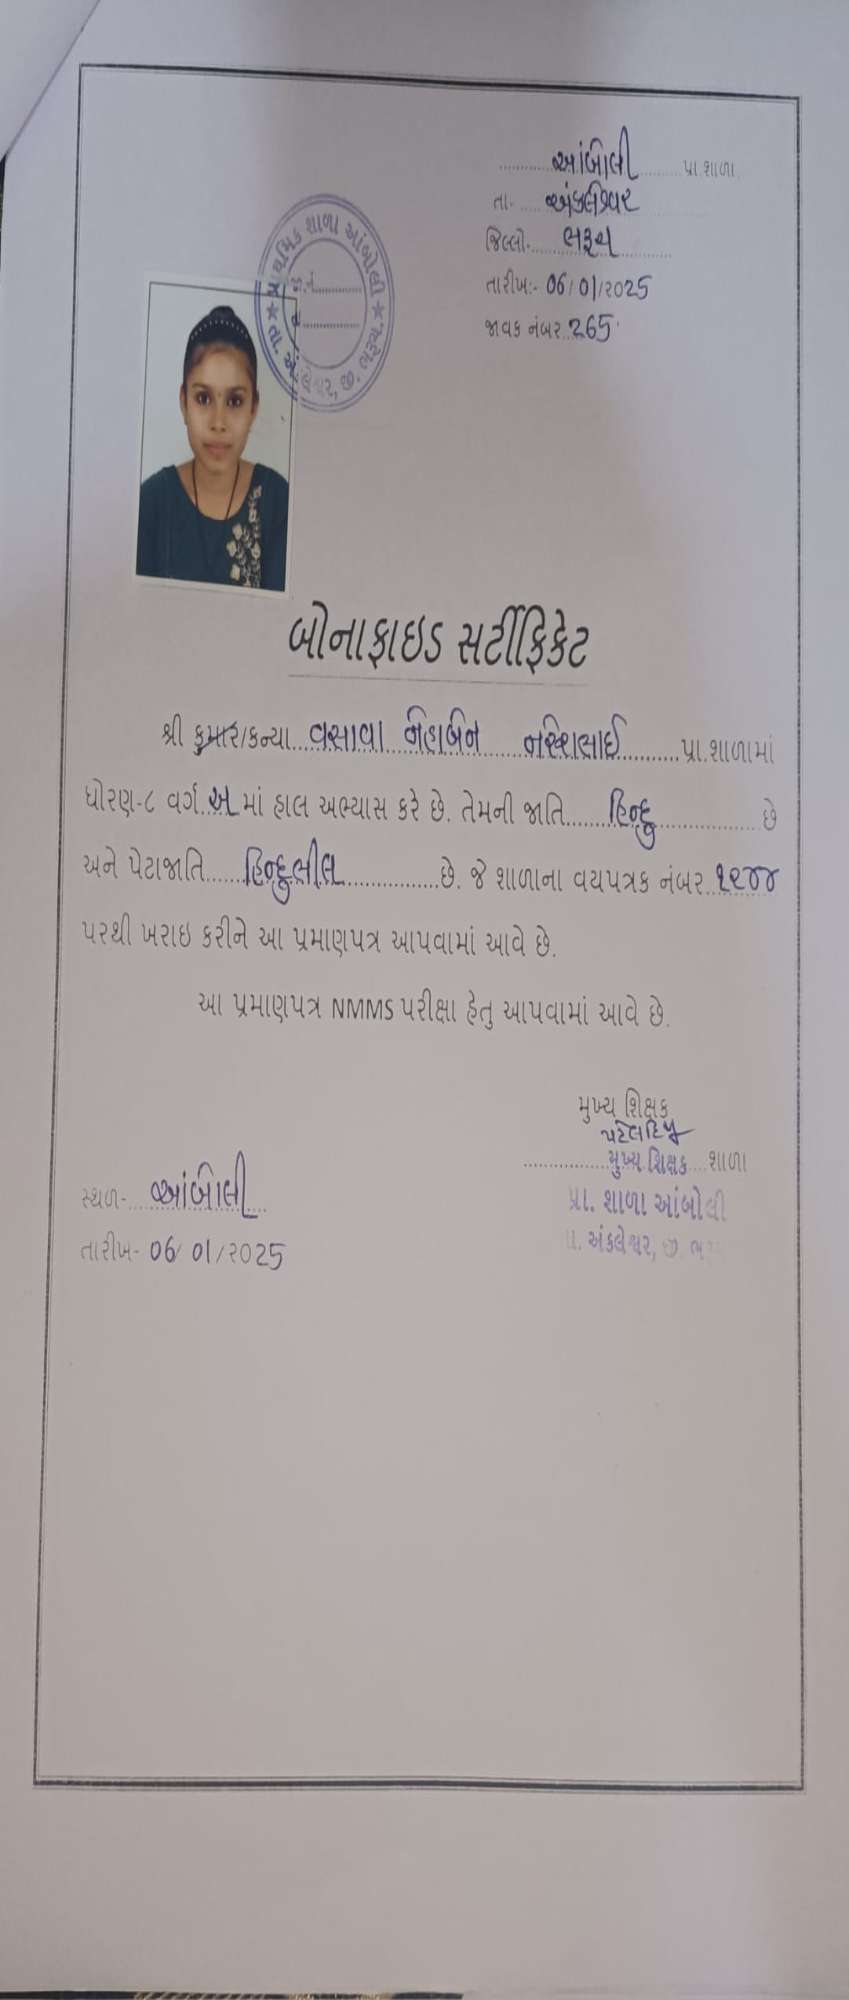 આંબોલી પ્રા.શાળા.
તા- અંકલેશ્વર
જિલ્લો- ભરૂચ
તારીખ:- 06/01/૨૦25
જાવક નંબર 265
પ્રાથમિક શાળા આંબોલી ★ તા. અંકલેશ્વર, જી. ભરૂચ ★
બોનાફાઇડ સર્ટીફિકેટ
શ્રી કુમાર/કન્યા વસાવા નેહાબેન પ્રા.શાળામાં
ધોરણ-૮ વર્ગ અ માં હાલ અભ્યાસ કરે છે. તેમની જાતિ હિન્દુ છે
અને પેટાજાતિ હિન્દુભીલ છે. જે શાળાના વયપત્રક નંબર ૧૮૪૪
પરથી ખરાઇ કરીને આ પ્રમાણપત્ર આપવામાં આવે છે.
આ પ્રમાણપત્ર NMMS પરીક્ષા હેતુ આપવામાં આવે છે.
મુખ્ય શિક્ષક
મુખ્ય શિક્ષક શાળા
પ્રા. શાળા આંબોલી
અંકલેશ્વર, જી.
સ્થળ- આંબોલી
તારીખ- 06/01/૨૦25